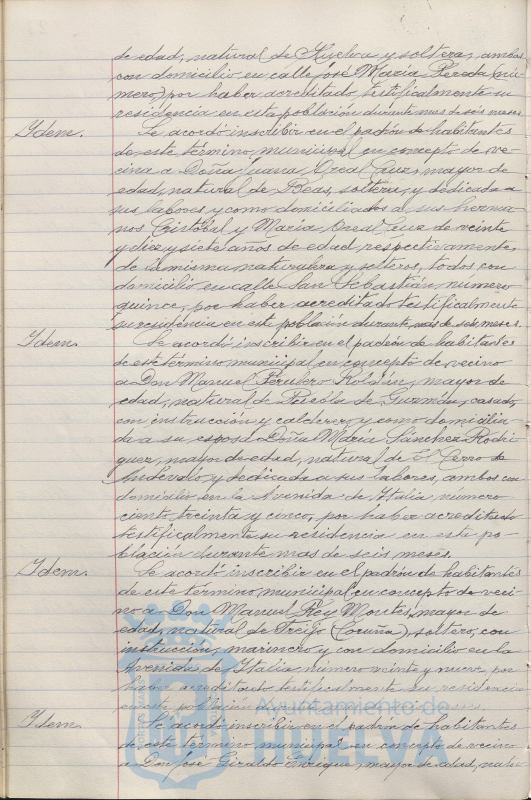 de edad, natural de Huelva y soltera, ambos
con domicilio en calle José María Pereda (nú-
mero) por haber acreditado testificalmente su
residencia en esta población durante mas de seis meses.
Ydem. Se acordó inscribir en el padrón de habitantes
de este término municipal en concepto de ve-
cina a Doña Juana Oreal Cruz, mayor de
edad, natural de Beas, soltera, y dedicada a
sus labores y como domiciliados a sus herma-
nos Cristóbal y María Oreal Cruz de veinte
y diez y siete años de edad respectivamente,
de la misma naturaleza y solteros, todos con
domicilio en calle San Sebastián, número
quince, por haber acreditado testificalmente
su residencia en esta población durante mas de seis meses.
Ydem. Se acordó inscribir en el padrón de habitantes
de este término municipal en concepto de vecino
a Don Manuel Perulero Roldán, mayor de
edad, natural de Puebla de Guzmán, casado,
con instrucción y calderero, y como domicilia-
da a su esposa Doña María Sánchez Rodrí-
guez, mayor de edad, natural de El Cerro de
Andévalo y dedicada a sus labores, ambos con
domicilio en la Avenida de Italia número
ciento treinta y cinco, por haber acreditado
testificalmente su residencia en esta po-
blación durante mas de seis meses.
Ydem. Se acordó inscribir en el padrón de habitantes
de este término municipal en concepto de veci-
no a Don Manuel Rey Montes, mayor de
edad, natural de (Coruña), soltero, con
instrucción, marinero y con domicilio en la
Avenida de Italia número veinte y nueve, por
haber acreditado testificalmente su residencia
en esta población meses.
Ydem. Se acordó inscribir en el padrón de habitantes
de este término municipal en concepto de vecino
a Don José Giraldo Enrique, mayor de edad, natu-
Ayuntamiento de
HUELVA